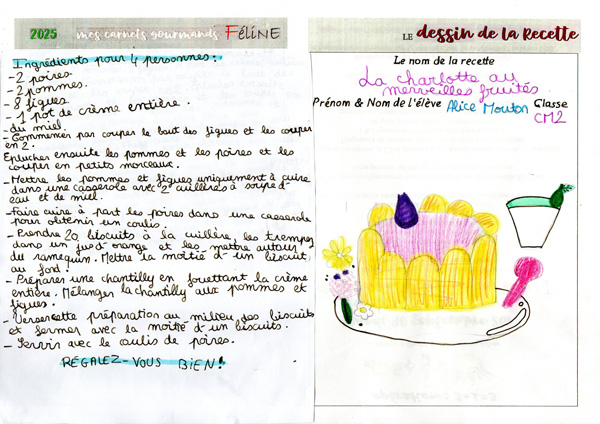 2025 mes carnets gourmands FéLiNE
Ingrédients pour 4 personnes:
- 2 poires.
- 2 pommes.
- 8 figues
- 1 pot de crème entière.
du miel.
- Commencer par couper le bout des figues et les couper
en 2.
Eplucher ensuite les pommes et les poires et les
couper en petits morceaux.
- Mettre les pommes et figues uniquement à cuire
dans une casserole avec 2 cuillères à soupe d'
eau et de miel.
- Faire cuire à part les poires dans une casserole
pour obtenir un coulis.
- Prendre 20 biscuits à la cuillère, les tremper
dans un jus d'orange et les mettre autour
du ramequin. Mettre la moitié d'un biscuit
au fond.
- Préparer une chantilly en fouettant la crème
entière. Mélanger la chantilly aux pommes et
figues.
- Verser cette préparation au milieu des biscuits
et fermer avec la moitié d'un biscuits.
- Servir avec le coulis de poires.
RÉGALEZ-VOUS BIEN!
LE dessin de la Recette
Le nom de la recette
La charlotte au
merveilles fruités
Prénom & Nom de l'élève Alice Mouton Classe
CM2